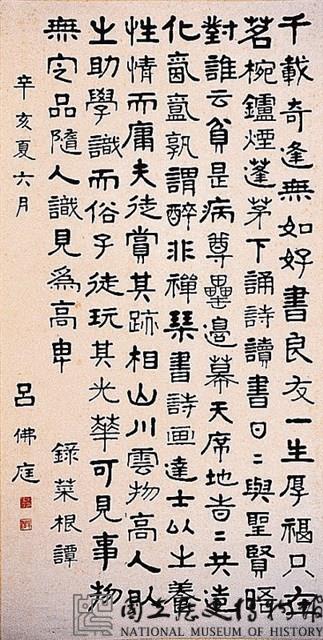 千載奇逢無如好書良友一生厚福只在
茗椀鑪煙蓬茅下誦詩讀書日〻與聖賢晤
對誰云貧是病尊罍邊幕天席地旹〻共造
化氤氳孰謂醉非禪琴書詩画達士以之養
性情而庸夫徒賞其跡相山川雲物高人以
之助學識而俗子徒玩其光華可見事物
無定品隨人識見爲高卑
錄菜根譚
辛亥夏六月
呂佛庭
國立歷史博物館
NATIONAL MUSEUM OF HISTORY